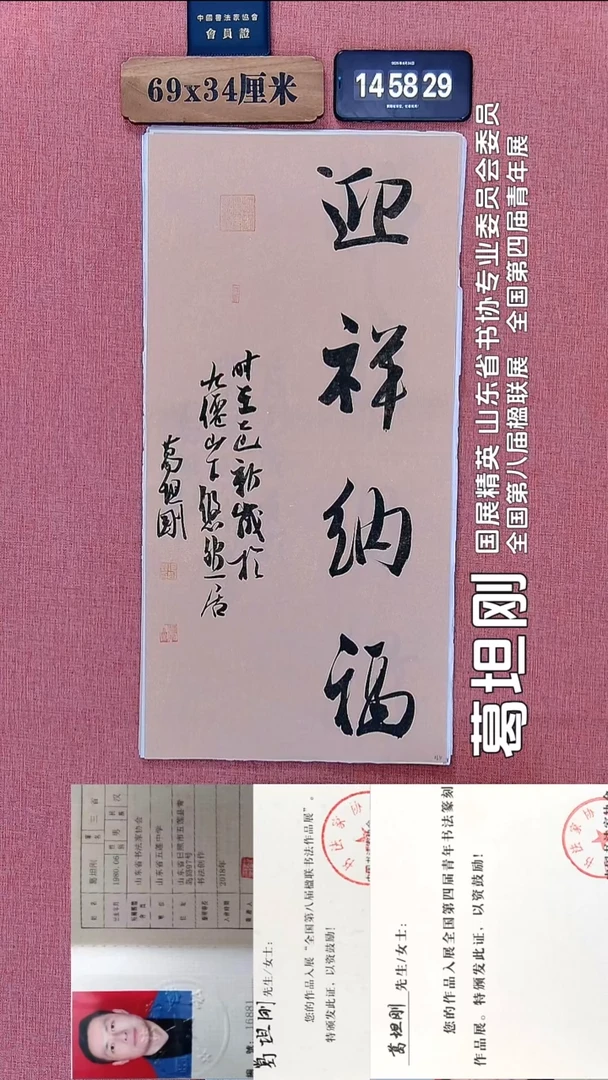 中國書法家協會
會員證
69x34厘米
14 58 29
迎祥纳福
时在乙巳新岁於
九僊山下悠然居
葛坦刚
葛坦刚
国展精英 山东省书协专业委员会委员
全国第八届楹联展 全国第四届青年展
葛坦刚
1980.06
男
汉
山东省书法家协会
山东省五莲中学
书法创作
2018年
葛坦刚 先生/女士:
您的作品入展“全国第八届楹联书法作品展”。
特颁发此证,以资鼓励!
葛坦刚 先生/女士:
您的作品入展全国第四届青年书法篆刻
作品展。特颁发此证,以资鼓励!